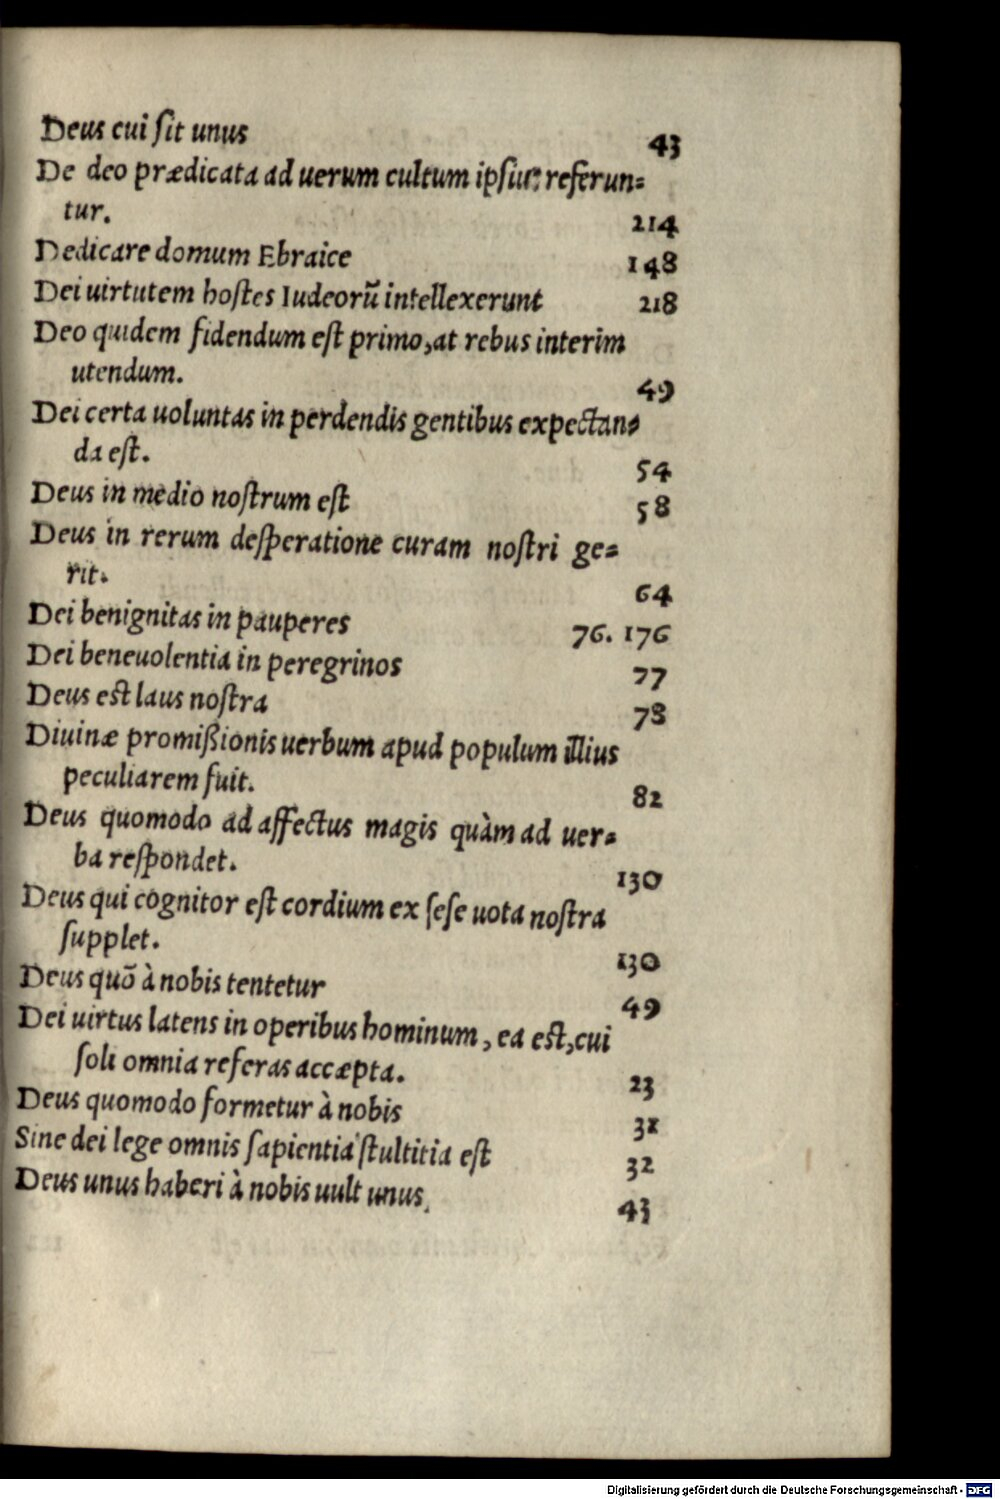 Deus cui ſit unus 43
De deo prædicata ad uerum cultum ipſius referun⸗
tur. 214
Dedicare domum Ebraice 148
Dei uirtutem hoſtes Iudeorũ intellexerunt 218
Deo quidem fidendum eſt primo, at rebus interim
utendum. 49
Dei certa uoluntas in perdendis gentibus expectan⸗
da eſt. 54
Deus in medio noſtrum eſt 58
Deus in rerum deſperatione curam noſtri ge⸗
rit. 64
Dei benignitas in pauperes 76. 176
Dei beneuolentia in peregrinos 77
Deus eſt laus noſtra 78
Diuinæ promiſsionis uerbum apud populum illius
peculiarem fuit. 82
Deus quomodo ad affectus magis quàm ad uer⸗
ba reſpondet. 130
Deus qui cognitor eſt cordium ex ſeſe uota noſtra
ſupplet. 130
Deus quõ à nobis tentetur 49
Dei uirtus latens in operibus hominum, ea eſt, cui
ſoli omnia referas accæpta. 23
Deus quomodo formetur à nobis 31
Sine dei lege omnis ſapientia ſtultitia eſt 32
Deus unus haberi à nobis uult unus. 43
Digitalisierung gefördert durch die Deutsche Forschungsgemeinschaft - DFG